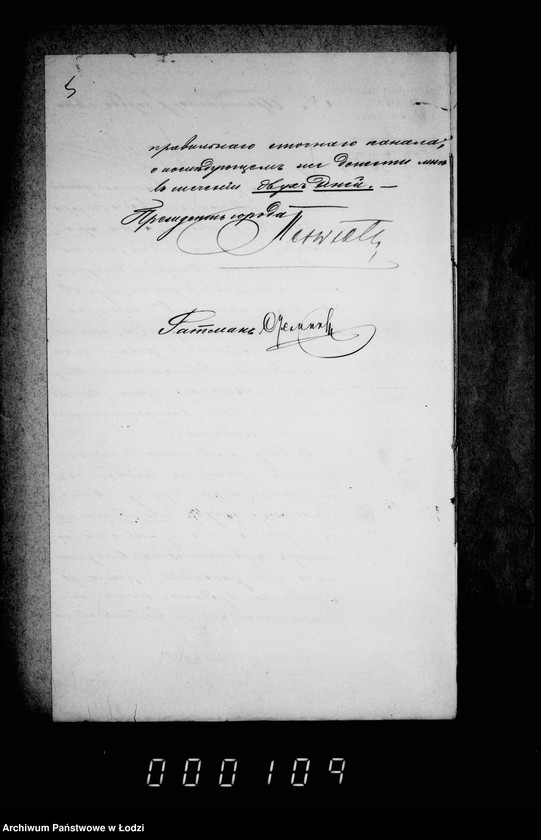 правильнаго сточнаго канала,
о послѣдующемъ же донести мнѣ
въ теченіи двухъ дней. —
Президентъ города
Ратманъ
000109
Archiwum Państwowe w Łodzi